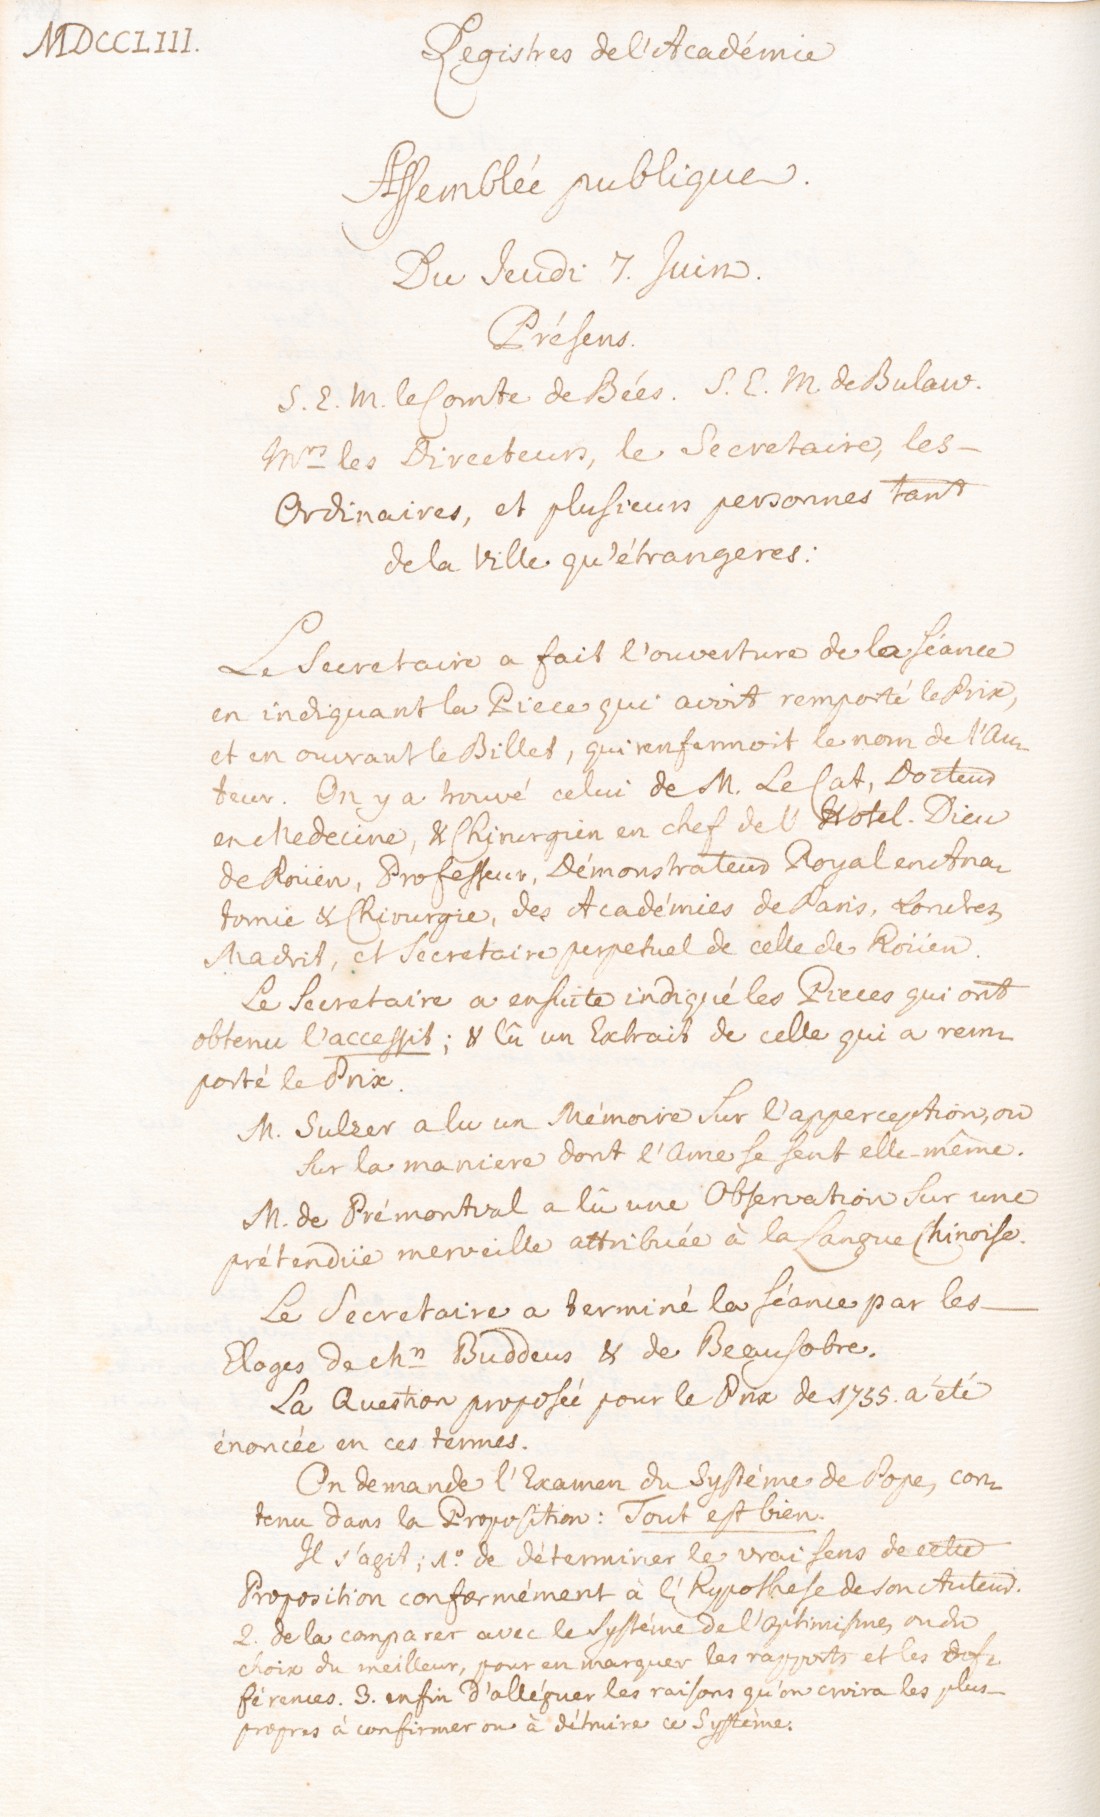 MDCCLIII.
Registres de l'Académie
Assemblée publique.
Du Jeudi 7. Juin.
Présens.
S. E. M. le Comte de Bées. S. E. M. de Bulau.
Mrs les Directeurs, le Secretaire, les
Ordinaires, et plusieurs personnes tant
de la Ville qu'étrangeres:
Le Secretaire a fait l'ouverture de la séance
en indiquant la Piece qui avoit remporté le Prix,
et en ouvrant le Billet, qui renfermoit le nom de l'Au-
teur. On y a trouvé celui de M. Le Cat, Docteur
en Medecine, & Chirurgien en chef de l'Hotel-Dieu
de Roüen, Professeur, Démonstrateur Royal en Ana-
tomie & Chirurgie, des Académies de Paris, Londres,
Madrit, et Secretaire perpetuel de celle de Roüen.
Le Secretaire a ensuite indiqué les Pieces qui ont
obtenu l'accessit; & lû un Extrait de celle qui a rem-
porté le Prix.
M. Sulzer a lu un Mémoire sur l'apperception, ou
sur la maniere dont l'Ame se sent elle-même.
M. de Prémontval a lû une Observation sur une
prétendüe merveille attribuée à la Langue Chinoise.
Le Secretaire a terminé la séance par les
Eloges de Mrs Buddeus & de Beausobre.
La Question proposée pour le Prix de 1755. a été
énoncée en ces termes.
On demande l'Examen du Systéme de Pope, con-
tenu dans la Proposition: Tout est bien.
Il s'agit; 1.° de déterminer le vrai sens de cette
Proposition conformément à l'Hypothese de son Auteur.
2. de la comparer avec le Systéme de l'Optimisme, ou du
choix du meilleur, pour en marquer les rapports et les dif-
férences. 3. enfin d'alléguer les raisons qu'on croira les plus
propres à confirmer ou à détruire ce Systéme.